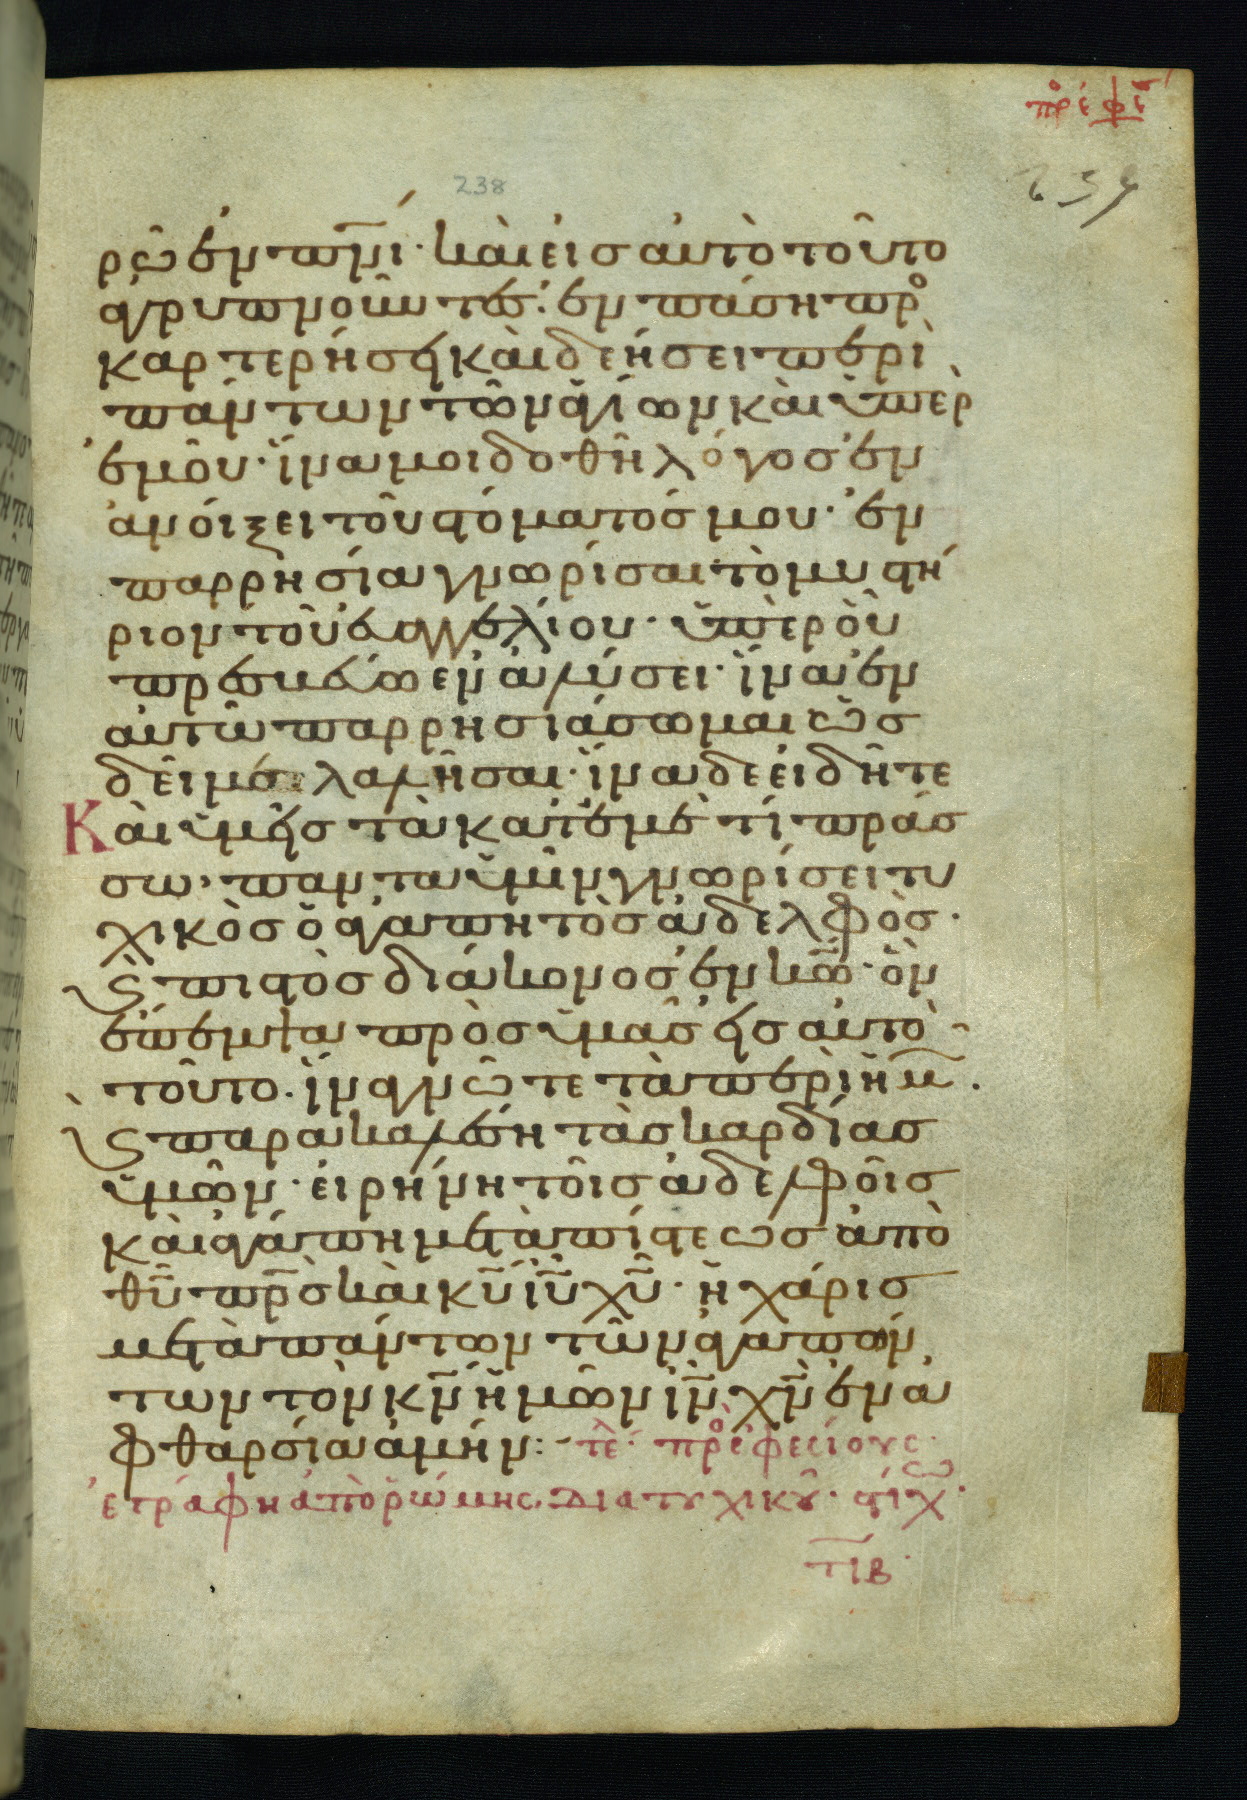 πρ ἐφε
238
239
ρῶ ἐν πν̅ι· καὶ εἰς αὐτὸ τοῦτο
ἀγρυπνοῦντες· ἐν πάση προ
καρτερήσει καὶ δεήσει περὶ
πάντων τῶν ἁγίων καὶ ὑπὲρ
ἐμοῦ· ἵνα μοι δοθῆ λόγος ἐν
ἀνοίξει τοῦ στόματός μου· ἐν
παρρησία γνωρίσαι τὸ μυστή
ριον τοῦ εὐαγγελίου· ὑπὲρ οὗ
πρεσβεύω ἐν ἁλύσει· ἵνα ἐν
αὐτῶ παρρησιάσωμαι ὡς
δεῖ με λαλῆσαι· ἵνα δε εἰδῆτε
Καὶ ὑμεῖς τὰ κατ' ἐμὲ τί πράσ
σω· παντα ὑμῖν γνωρίσει τυ
χικὸς ὁ ἀγαπητὸς ἀδελφὸς·
ϗ πιστὸς διάκονος ἐν κω̅· ὃν
ἔπεμψα πρὸς ὑμᾶς εἰς αὐτὸ
τοῦτο· ἵνα γνῶτε τὰ περὶ ἡμῶν.
ϗ παρακαλέση τὰς καρδίας
ὑμῶν· εἰρήνη τοῖς ἀδελφοῖς
καὶ ἀγάπη μετὰ πίστεως ἀπὸ
θυ̅ πρ̅ς καὶ κυ̅ ιυ̅ χυ̅· ἡ χάρις
μετὰ πάντων τῶν ἀγαπών
των τὸν κν̅ ἡμῶν ιν̅ χν̅ ἐν ἀ
φθαρσία ἀμήν:- τέλ· πρ ἐφεσίους·
ἐγράφη ἀπὸ ῥώμης· διὰ τυχικοῦ· στίχω·
τιβ·